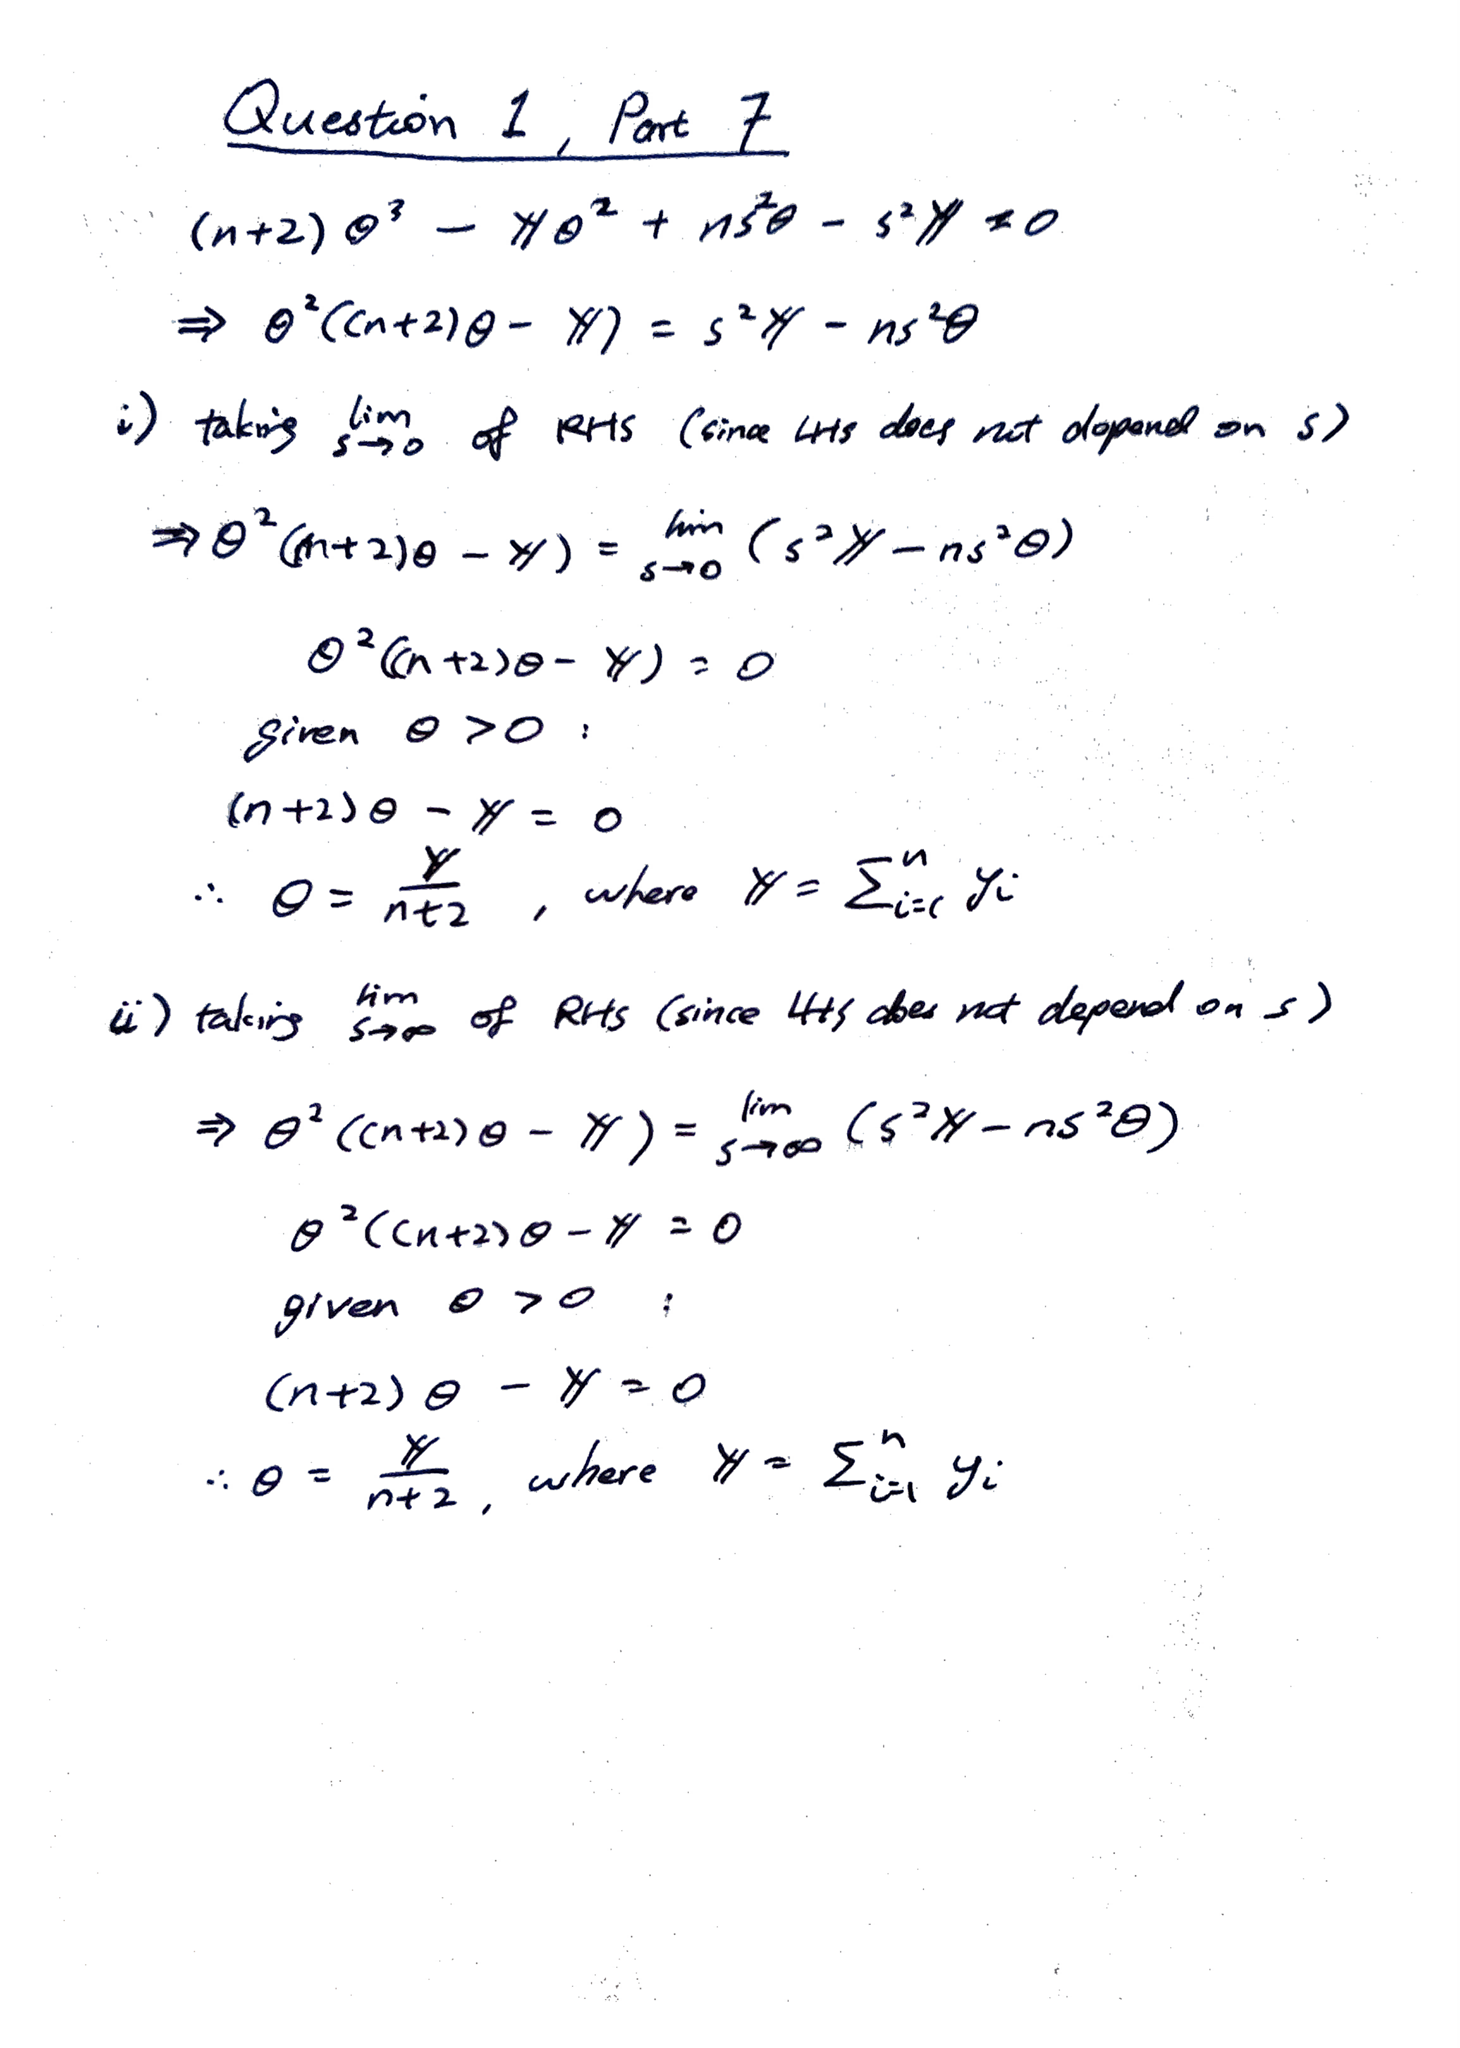 Question 1, Part 7
(n+2) θ³ − Y θ² + ns²θ − s²Y = 0
⇒ θ²((n+2)θ − Y) = s²Y − ns²θ
i) taking lim s→0 of RHS (since LHS does not depend on s)
⇒ θ²((n+2)θ − Y) = lim s→0 (s²Y − ns²θ)
θ²((n+2)θ − Y) = 0
given θ > 0 :
(n+2)θ − Y = 0
∴ θ = Y/n+2 , where Y = Σⁿᵢ₌₁ yᵢ
ii) taking lim s→∞ of RHS (since LHS does not depend on s)
⇒ θ²((n+2)θ − Y) = lim s→∞ (s²Y − ns²θ)
θ²((n+2)θ − Y = 0
given θ > 0 :
(n+2) θ − Y = 0
∴ θ = Y/n+2 , where Y = Σⁿᵢ₌₁ yᵢ